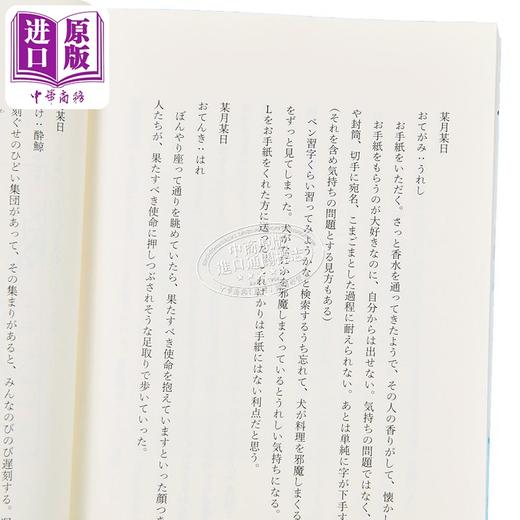 進口
原版
中華商務
某月某日
おてがみ：うれし
お手紙をいただく。さっと香水を通ってきたようで、その人の香りがして、懐かし
お手紙をもらうのが大好きなのに、自分からは出せない。気持ちの問題ではなく、
や封筒、切手に宛名、こまごまとした過程に耐えられない。あとは単純に字が下手す
（それを含め気持ちの問題とする見方もある）
ペン習字くらい習ってみようかなと検索するうち忘れて、犬が料理を邪魔しまくる
をずっと見てしまった。犬がなにかを邪魔しまくっているとうれしい気持ちになる。
Lをお手紙をくれた方に送
ればかりは手紙にはない利点だと思う。
某月某日
おてんき：はれ
ぼんやり座って通りを眺めていたら、果たすべき使命を抱えていますといった顔つき
人たちが、果たすべき使命に押しつぶされそうな足取りで歩いていった。
某月某日
け：酔鯨
刻ぐせのひどい集団があって、その集まりがあると、みんなのびのび遅刻する。